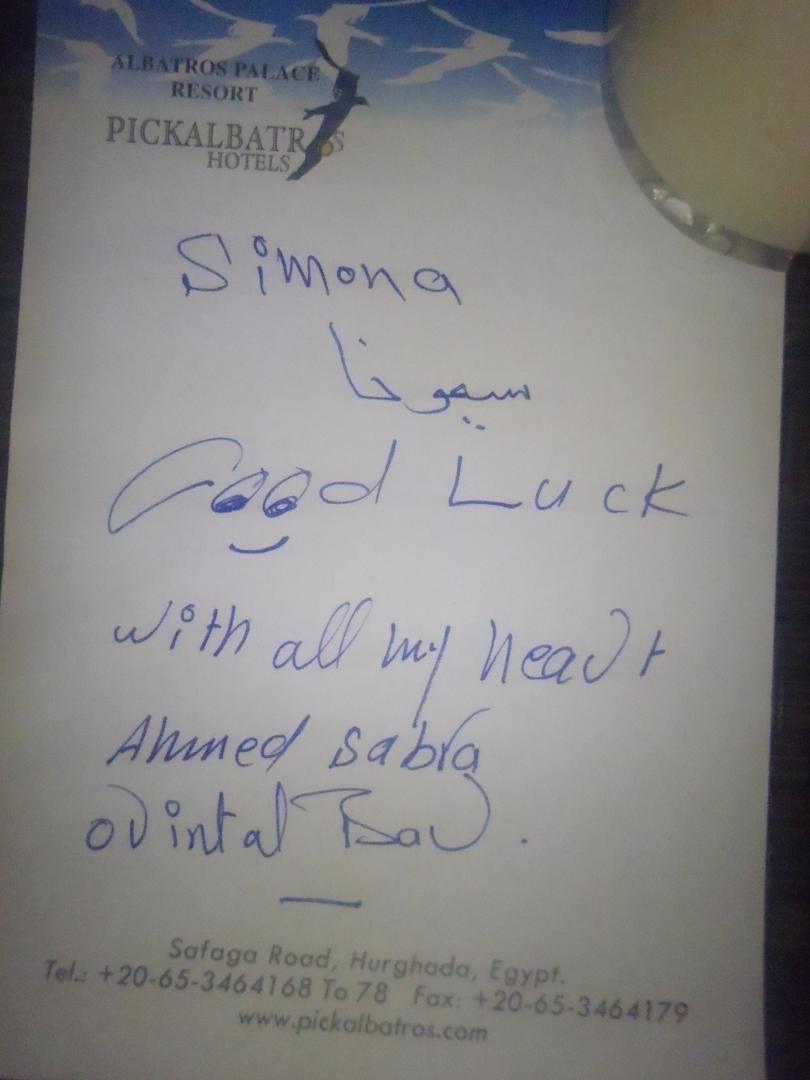 ALBATROS PALACE
RESORT
PICKALBATROS
HOTELS
Simona
سيمونا
Good Luck
with all my heart
Ahmed sabra
orintal Bar.
Safaga Road, Hurghada, Egypt.
Tel.: +20-65-3464168 To 78 Fax: +20-65-3464179
www.pickalbatros.com